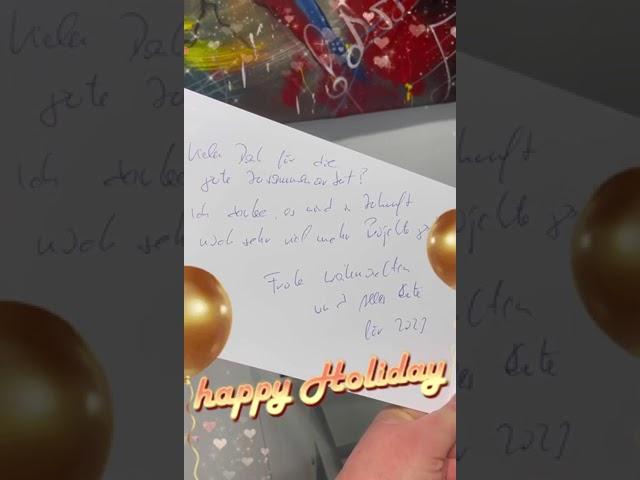 Vielen Dank für die
gute Zusammenarbeit!
Ich denke, es wird in Zukunft
noch sehr viel mehr Projekte
Frohe Weihnachten
und alles Gute
für 2023
happy Holiday